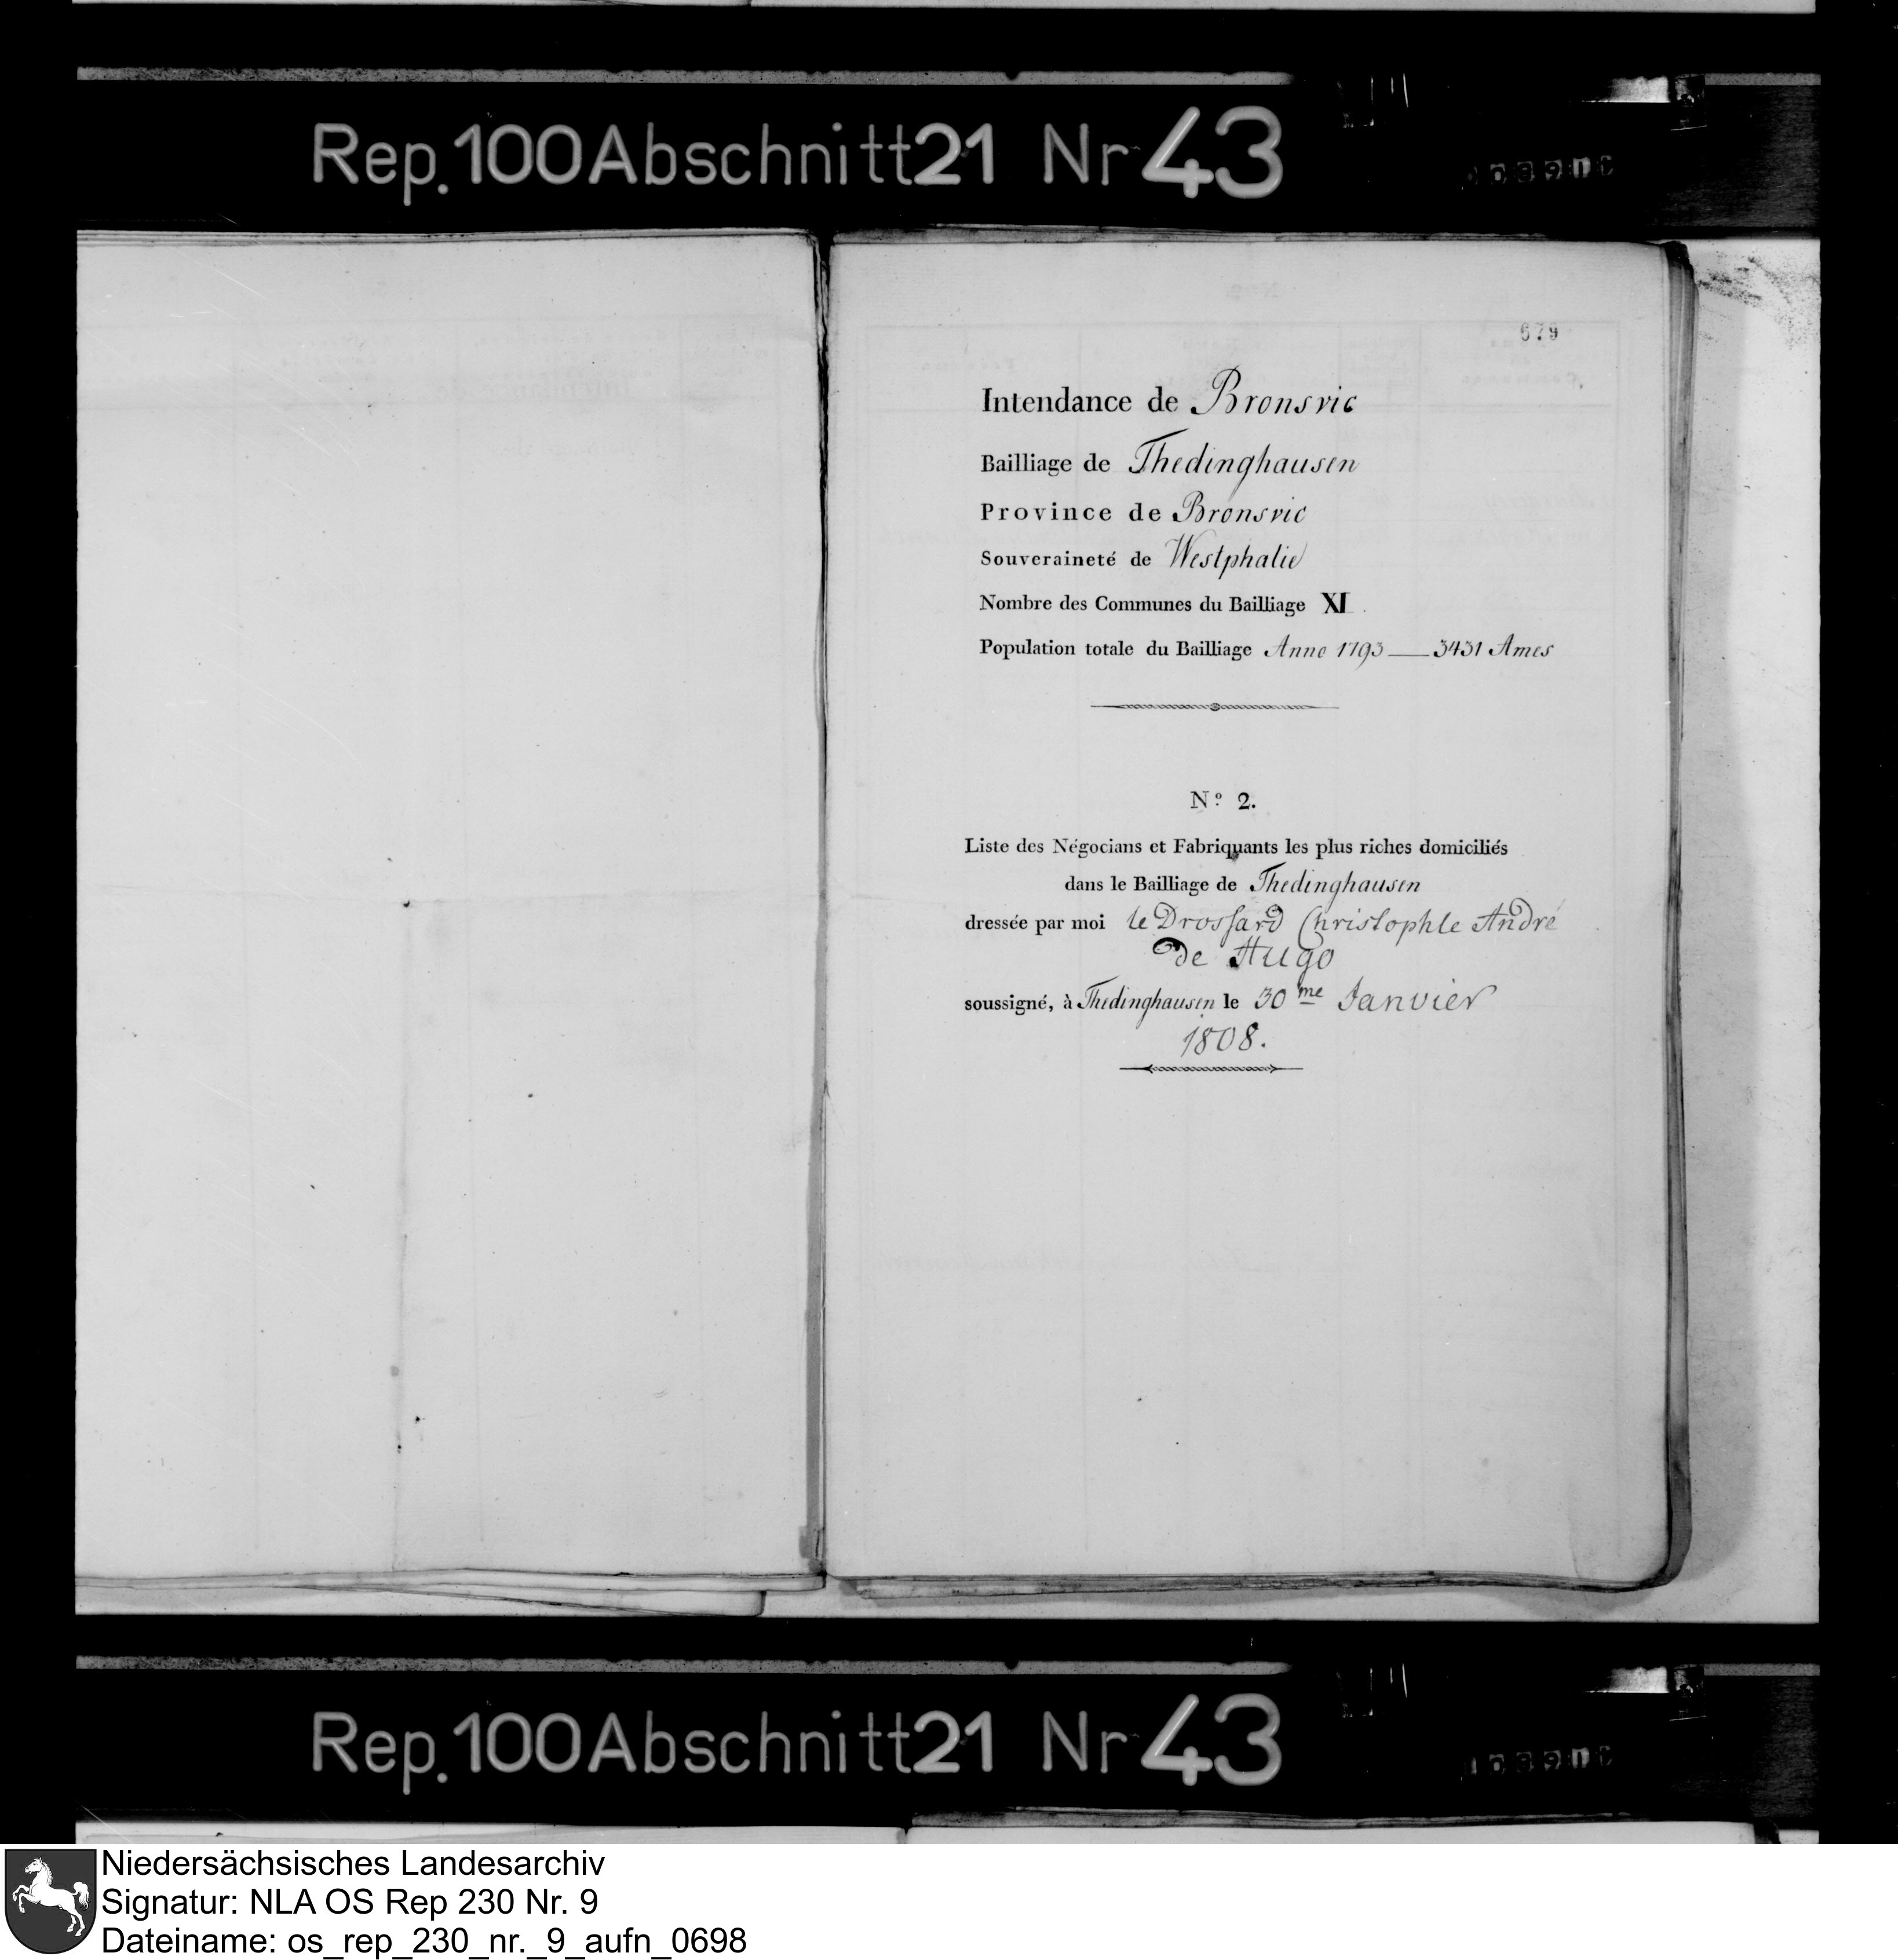 Rep.100Abschnitt21 Nr 43
679
Intendance de Bronsvic
Bailliage de Thedinghausen
Province de Bronsvic
Souveraineté de Westphalie
Nombre des Communes du Bailliage XI
Population totale du Bailliage Anno 1793 — 3431 Ames
Nº 2.
Liste des Négocians et Fabriquants les plus riches domiciliés
dans le Bailliage de Thedinghausen
dressée par moi le Drossard Christophle André
de Hugo
soussigné, à Thedinghausen le 30me Janvier
1808.
Rep.100Abschnitt21 Nr 43
Niedersächsisches Landesarchiv
Signatur: NLA OS Rep 230 Nr. 9
Dateiname: os_rep_230_nr._9_aufn_0698